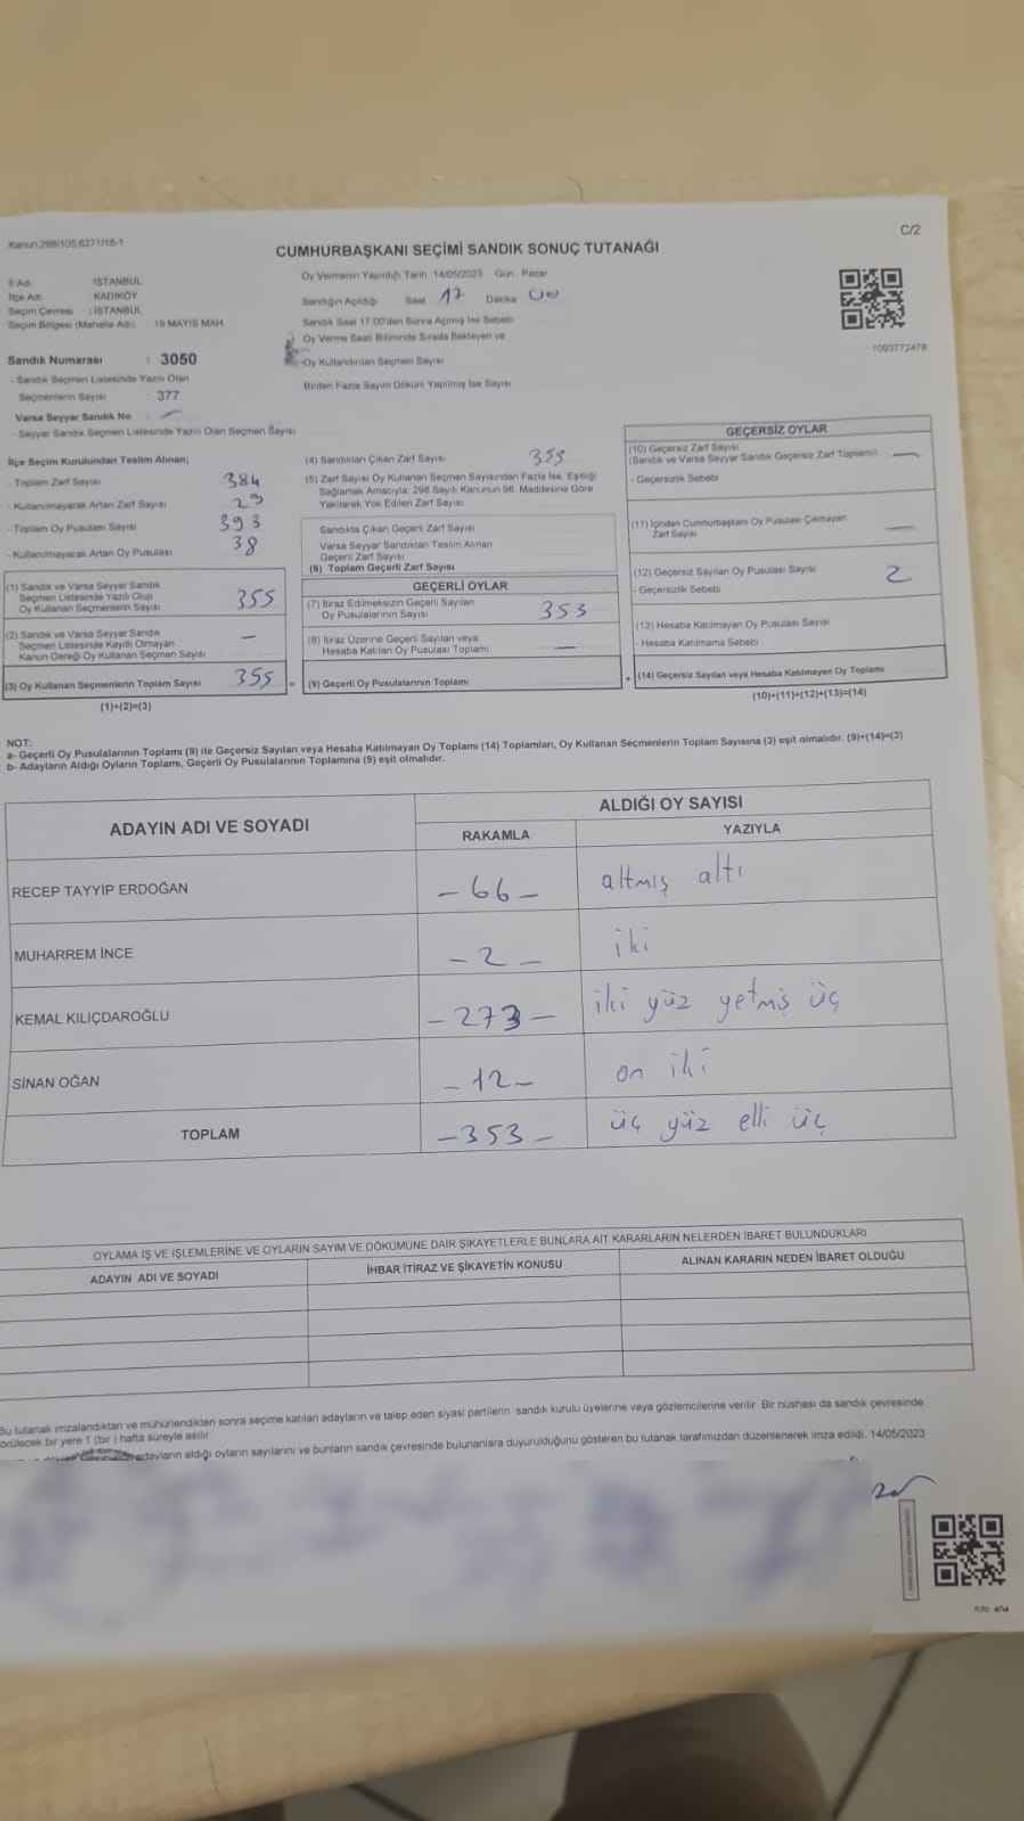 Kanun:298/105,6271/18-1
C/2
CUMHURBAŞKANI SEÇİMİ SANDIK SONUÇ TUTANAĞI
İl Adı : İSTANBUL
İlçe Adı : KADIKÖY
Seçim Çevresi : İSTANBUL
Seçim Bölgesi (Mahalle Adı) : 19 MAYIS MAH.
Sandık Numarası : 3050
- Sandık Seçmen Listesinde Yazılı Olan
Seçmenlerin Sayısı : 377
Varsa Seyyar Sandık No : —
- Seyyar Sandık Seçmen Listesinde Yazılı Olan Seçmen Sayısı
Oy Vermenin Yapıldığı Tarih: 14/05/2023 Gün : Pazar
Sandığın Açıldığı Saat 17 Dakika 00
Sandık Saat 17:00'den Sonra Açılmış İse Sebebi
Oy Verme Saati Bitiminde Sırada Bekleyen ve
Oy Kullandırılan Seçmen Sayısı
Birden Fazla Sayım Dökümü Yapılmış İse Sayısı
1093772478
İlçe Seçim Kurulundan Teslim Alınan;
- Toplam Zarf Sayısı 384
- Kullanılmayarak Artan Zarf Sayısı 29
- Toplam Oy Pusulası Sayısı 393
- Kullanılmayarak Artan Oy Pusulası 38
(1) Sandık ve Varsa Seyyar Sandık
Seçmen Listesinde Yazılı Olup
Oy Kullanan Seçmenlerin Sayısı 355
(2) Sandık ve Varsa Seyyar Sandık
Seçmen Listesinde Kayıtlı Olmayan
Kanun Gereği Oy Kullanan Seçmen Sayısı —
(3) Oy Kullanan Seçmenlerin Toplam Sayısı 355
(1)+(2)=(3)
(4) Sandıktan Çıkan Zarf Sayısı 355
(5) Zarf Sayısı Oy Kullanan Seçmen Sayısından Fazla İse, Eşitliği
Sağlamak Amacıyla; 298 Sayılı Kanunun 98. Maddesine Göre
Yakılarak Yok Edilen Zarf Sayısı
Sandıkta Çıkan Geçerli Zarf Sayısı
Varsa Seyyar Sandıktan Teslim Alınan
Geçerli Zarf Sayısı
(6) Toplam Geçerli Zarf Sayısı
GEÇERLİ OYLAR
(7) İtiraz Edilmeksizin Geçerli Sayılan
Oy Pusulalarının Sayısı 353
(8) İtiraz Üzerine Geçerli Sayılan veya
Hesaba Katılan Oy Pusulası Toplamı —
= (9) Geçerli Oy Pusulalarının Toplamı
GEÇERSİZ OYLAR
(10) Geçersiz Zarf Sayısı
(Sandık ve Varsa Seyyar Sandık Geçersiz Zarf Toplamı) —
- Geçersizlik Sebebi
(11) İçinden Cumhurbaşkanı Oy Pusulası Çıkmayan
Zarf Sayısı —
(12) Geçersiz Sayılan Oy Pusulası Sayısı 2
- Geçersizlik Sebebi
(13) Hesaba Katılmayan Oy Pusulası Sayısı
- Hesaba Katılmama Sebebi
+ (14) Geçersiz Sayılan veya Hesaba Katılmayan Oy Toplamı
(10)+(11)+(12)+(13)=(14)
NOT:
a- Geçerli Oy Pusulalarının Toplamı (9) ile Geçersiz Sayılan veya Hesaba Katılmayan Oy Toplamı (14) Toplamları, Oy Kullanan Seçmenlerin Toplam Sayısına (3) eşit olmalıdır. (9)+(14)=(3)
b- Adayların Aldığı Oyların Toplamı, Geçerli Oy Pusulalarının Toplamına (9) eşit olmalıdır.
ADAYIN ADI VE SOYADI
ALDIĞI OY SAYISI
RAKAMLA YAZIYLA
RECEP TAYYIP ERDOĞAN -66- altmış altı
MUHARREM İNCE -2- iki
KEMAL KILIÇDAROĞLU -273- iki yüz yetmiş üç
SİNAN OĞAN -12- on iki
TOPLAM -353- üç yüz elli üç
OYLAMA İŞ VE İŞLEMLERİNE VE OYLARIN SAYIM VE DÖKÜMÜNE DAİR ŞİKAYETLERLE BUNLARA AİT KARARLARIN NELERDEN İBARET BULUNDUKLARI
ADAYIN ADI VE SOYADI İHBAR İTİRAZ VE ŞİKAYETİN KONUSU ALINAN KARARIN NEDEN İBARET OLDUĞU
Bu tutanak imzalandıktan ve mühürlendikten sonra seçime katılan adayların ve talep eden siyasi partilerin sandık kurulu üyelerine veya gözlemcilerine verilir. Bir nüshası da sandık çevresinde
görülecek bir yere 1 (bir) hafta süreyle asılır.
adayların aldığı oyların sayılarını ve bunların sandık çevresinde bulunanlara duyurulduğunu gösteren bu tutanak tarafımızdan düzenlenerek imza edildi. 14/05/2023